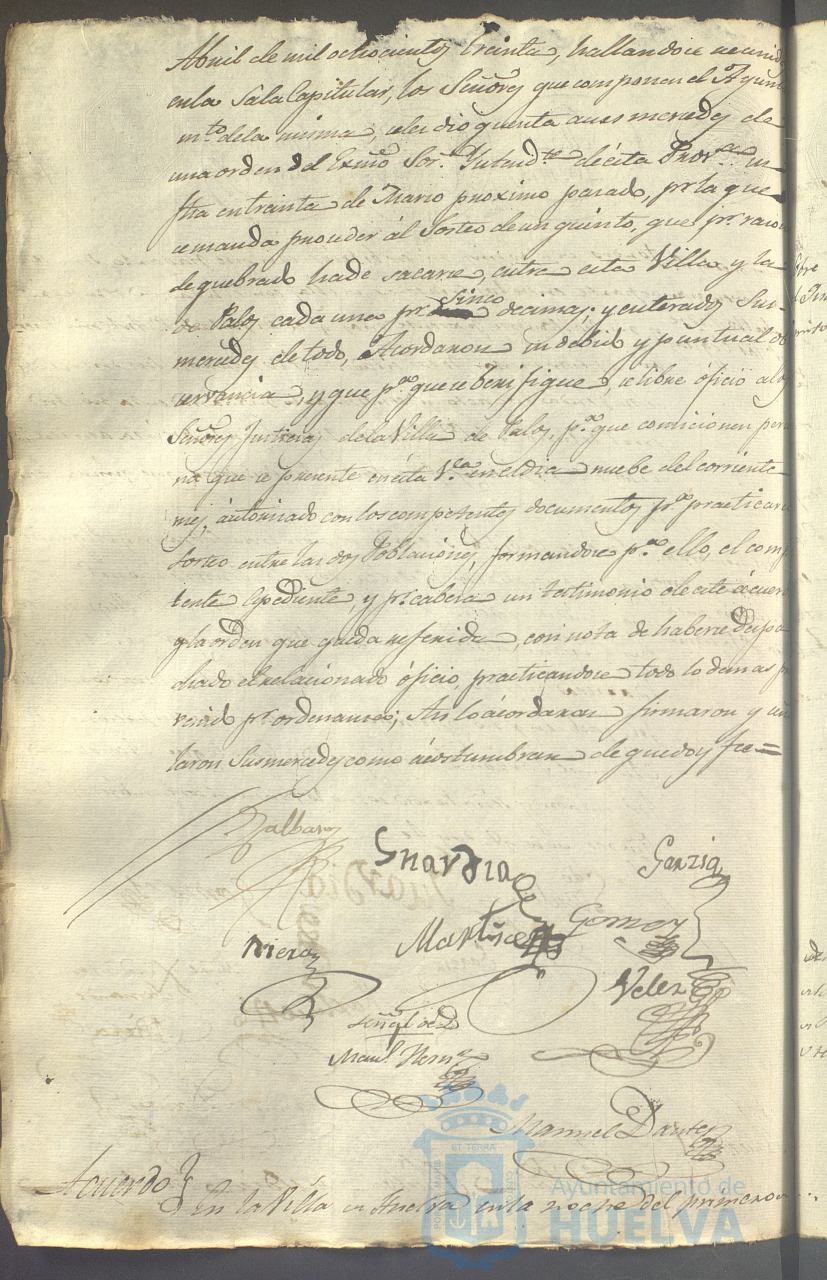 Abril de mil ochocientos treinta, hallandose reunid
en la Sala Capitular, los Señores que componen el Ayunta
mto. de la misma, se les dio quenta a sus mercedes de
una orden del Exmo Sor. Intendte de esta Prova.
fha en treinta de Marzo proximo pasado, pr la que
se manda proceder ál Sorteo de un quinto, que pr razon
de quebrado ha de sacarse, entre esta Villa y la
de Palos cada una pr Sinco decimas; y enterados Sus
mercedes de todo, Acordaron su debida y puntual ob
servancia, y que pa que se berifique, se libre óficio a los
Señores Justicias de la Villa de Palos, pa que comicionen perso
na que se presente en ésta Va en el dia nuebe del corriente
mes, áutorisado con los competentes documentos pa practicar
sorteo entre las dos Poblaciones, formandose pa ello, el compe
tente espediente, y pr cabesa un testimonio de este ácuerd
y la orden que queda referida, con nota de haberse despa
chado el relacionado óficio, practicandose todo lo demas pr
venido pr ordenansa; Asi lo ácordaron firmaron y señ
laron Sus mercedes como ácostumbran de que doy fee=
Guardia
Garzia
Gomez
Martinez
Riera
Velez
Señal de D
Manl. Herna
Manuel Dante
Acuerdo } En la Villa de Huelva en la noche del primero
Ayuntamiento de
HUELVA